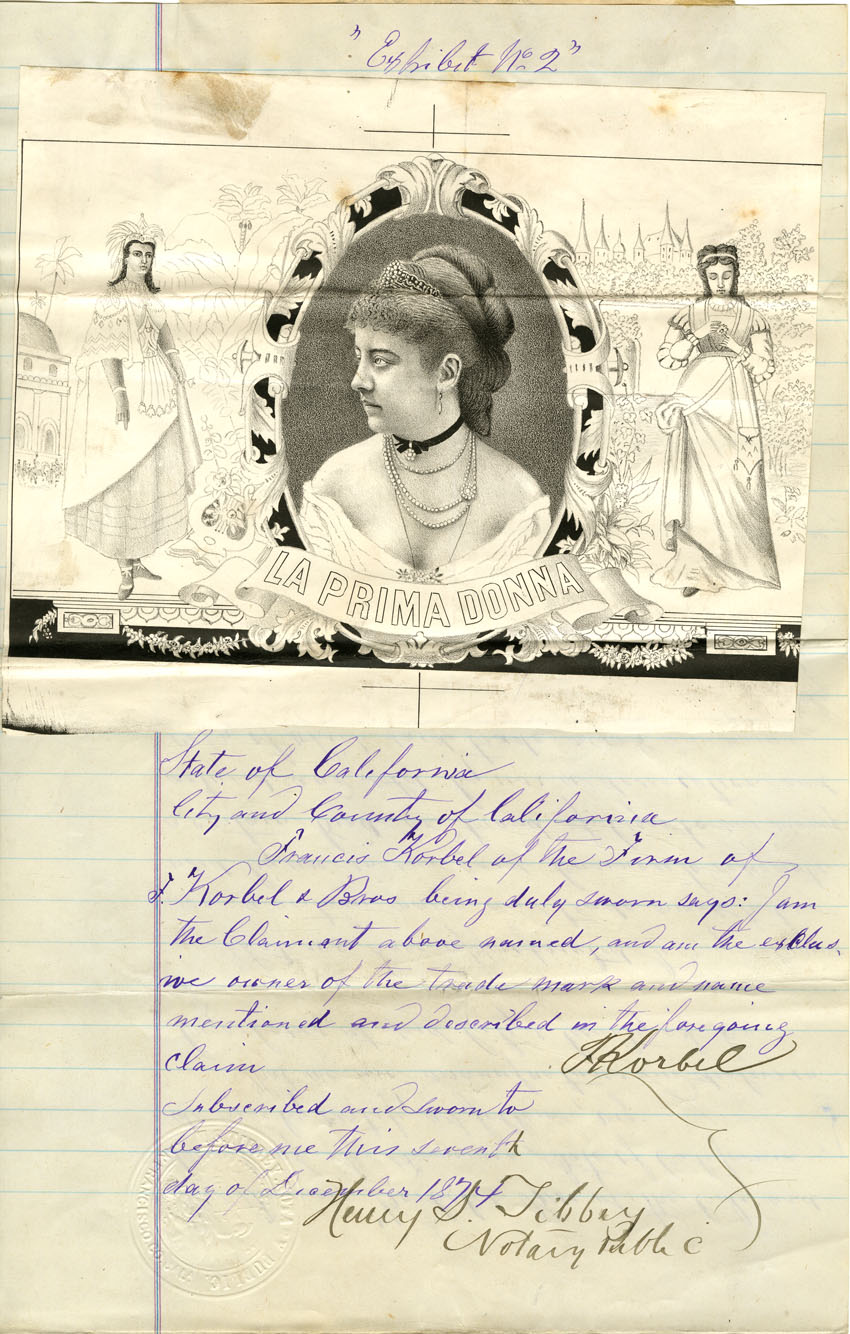 "Exhibit No 2"
LA PRIMA DONNA
State of California
City and County of California
Francis Korbel of the Firm of
F. Korbel & Bros being duly sworn says: I am
the Claimant above named, and am the exclus-
ive owner of the trade mark and name
mentioned and described in the foregoing
claim
FKorbel
Subscribed and sworn to
before me this seventh
day of December 1874
Henry S. Tibbey
Notary Public